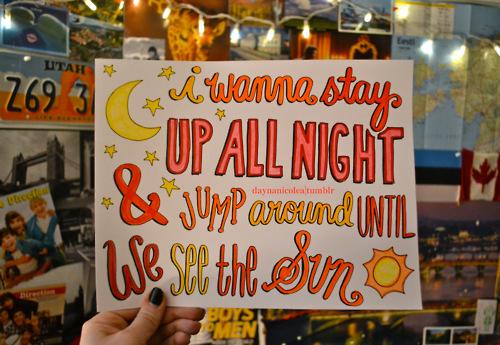 i wanna stay
UP ALL NIGHT
daynanicolea|tumblr
& JUMP around UNTIL
We see the Sun
UTAH
Z69 3
Eesti
Direction
Direction
BOYS
MEN